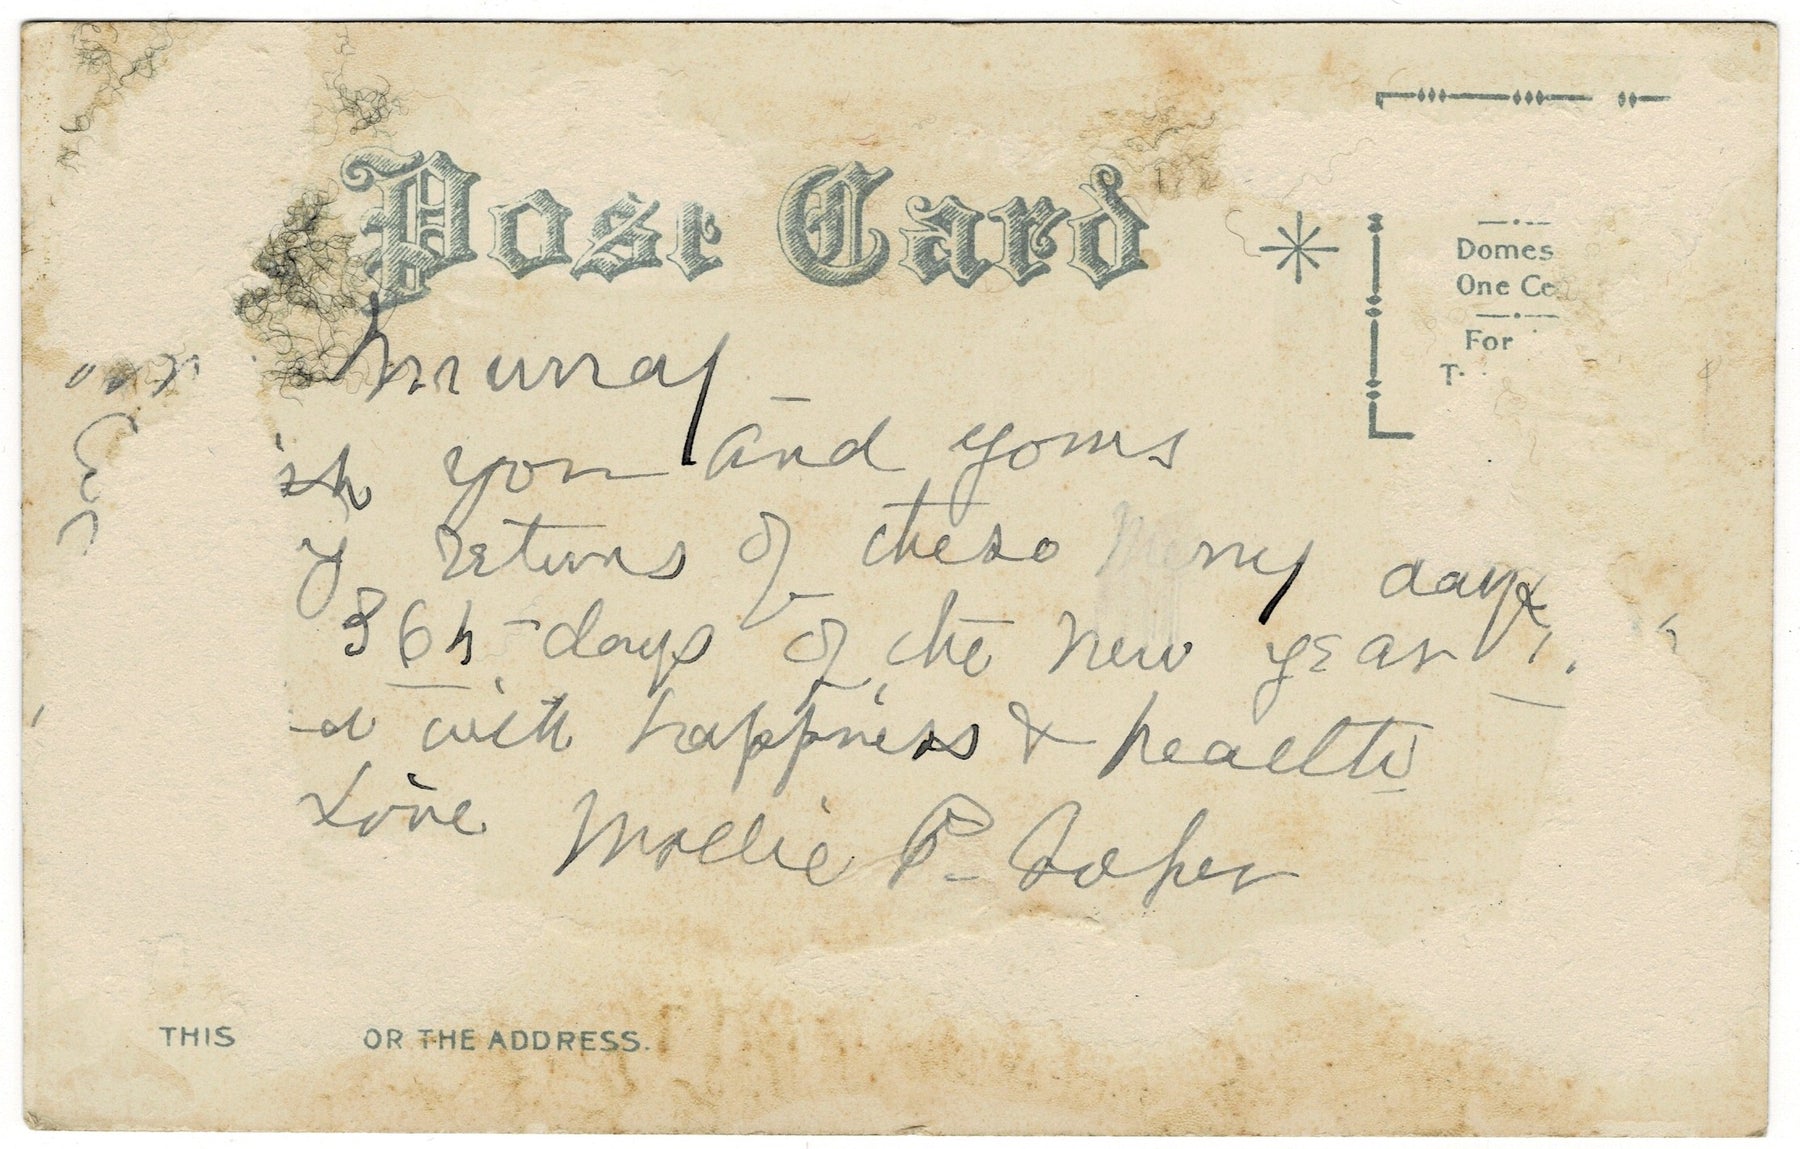 Post Card
Domes
One Ce
For
T
Murray
ish you and yours
y returns of these Merry days
364 - days of the New year
d with happiness & health
Love Mollie P. Soper
THIS OR THE ADDRESS.